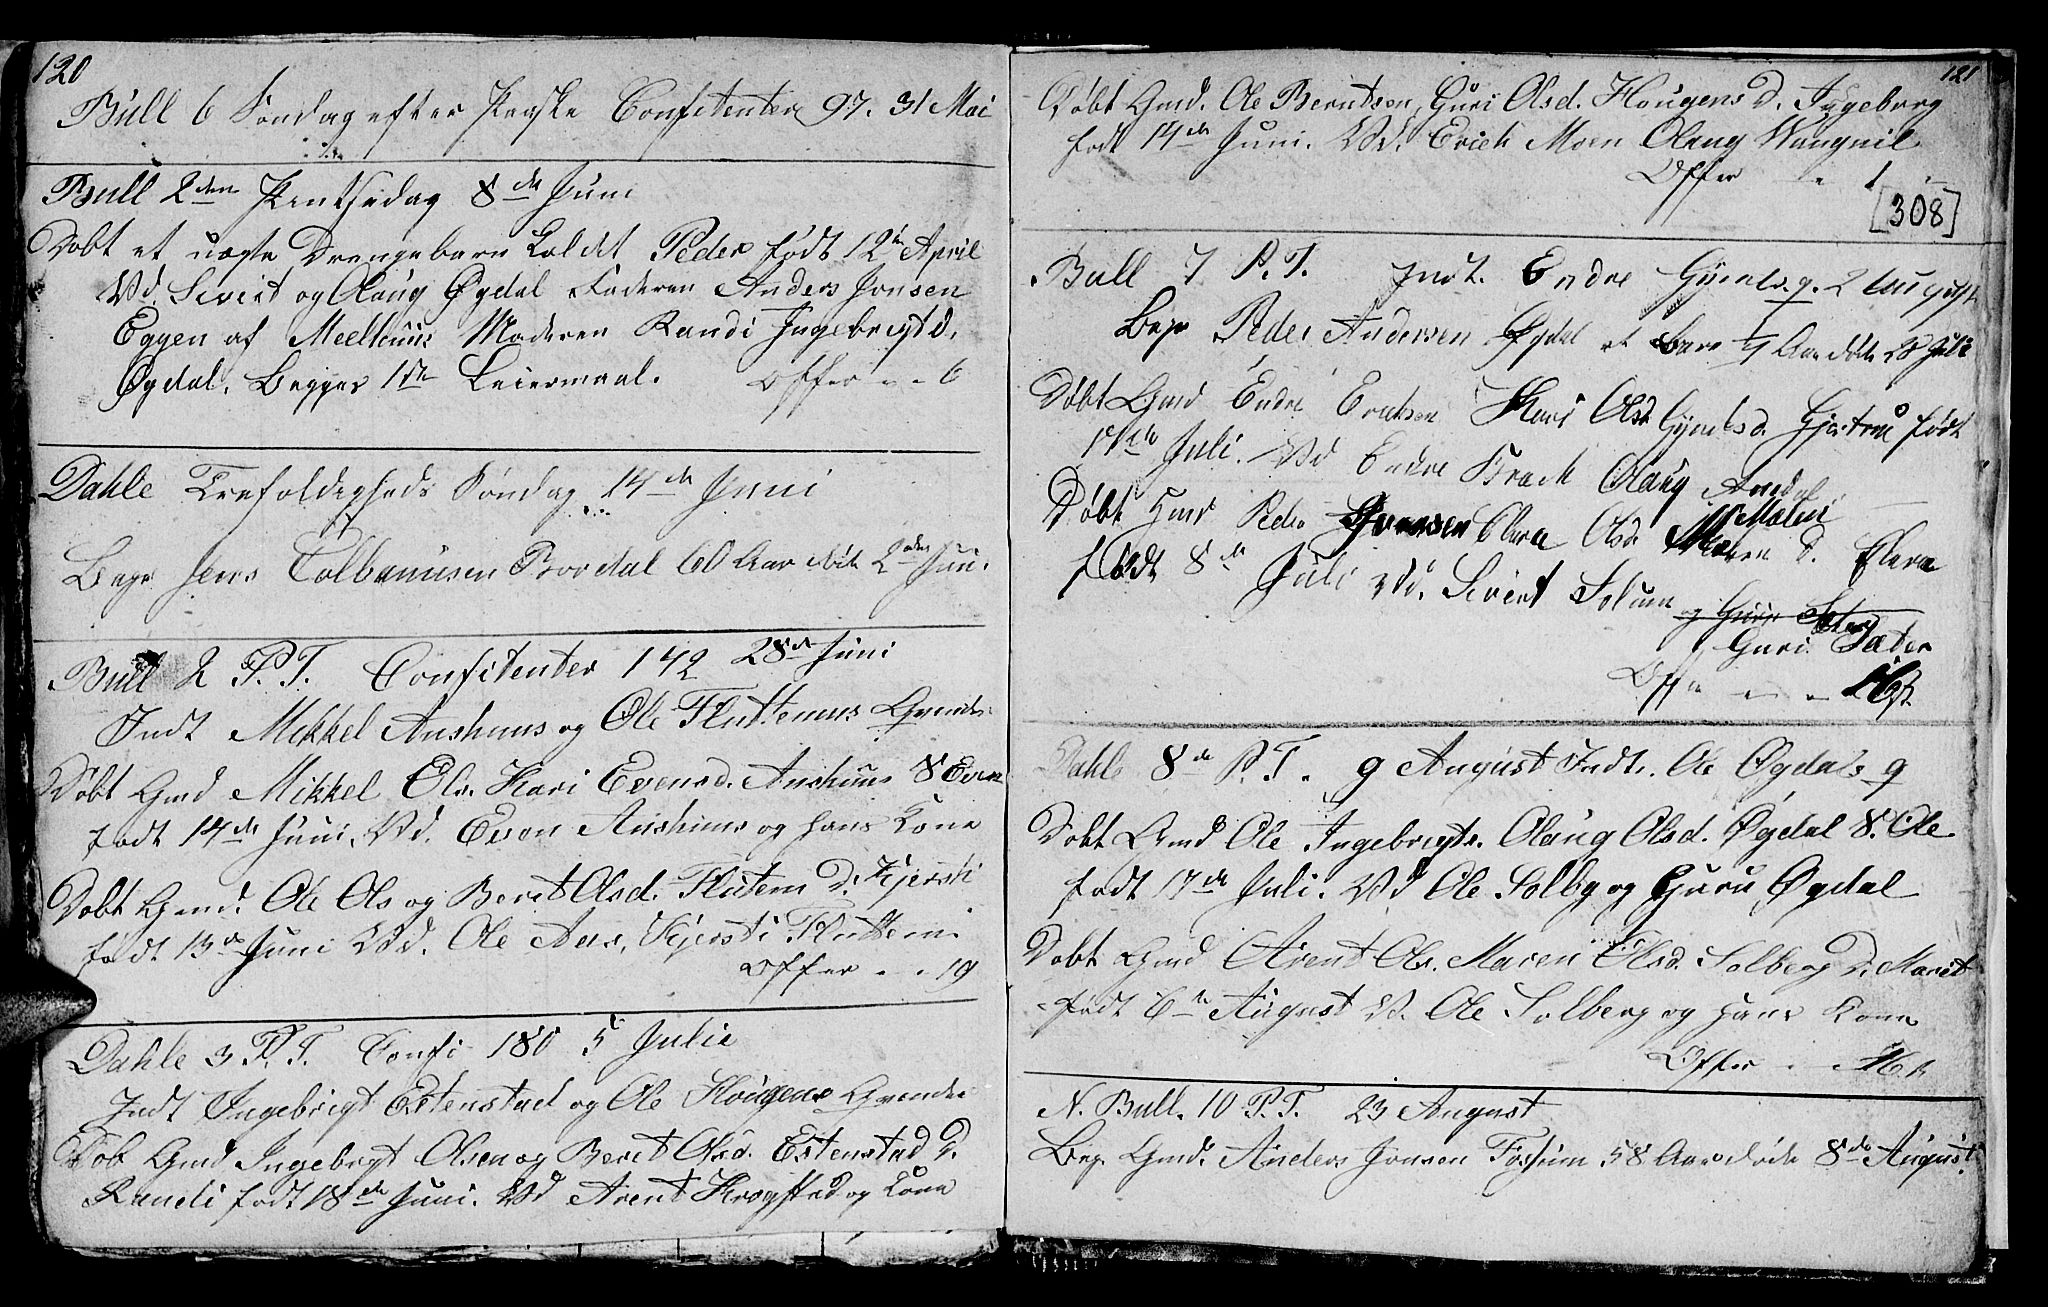 120
Bull 6 Søndag efter Paaske Confitenter 97. 31 Mai
Bull 2den Pintsedag 8de Juni
Døbt et uægte Drengebarn kaldet Peder født 12te April
Vd. Sivert og Olaug Øgdal Faderen Anders Jonsen
Eggen af Meelhuus Moderen Randi Ingebrigtd.
Øgdal. Begges 1ste Leiermaal. Offer - - 6
Dahle Trefoldigheds Søndag 14de Juni
Begr Jens Colbenusen Bordal 60 Aar død 2den Juni.
Bull 2 P. T. Confitenter 142 28de Juni
Indt Mikkel Aushuus og Ole Fluttemus Qvinder
Døbt Gmd Mikkel Ols. Kari Evensd. Aushuus S Even
født 14de Juni. Vd. Even Aushuus og hans Kone
Døbt Gmd. Ole Ols og Beret Olsd. Flutem D. Kjersti
født 13de Juni Vd. Ole Aus, Kjersti Fluttem.
Offer - - 19
Dahle 3 P. T. Confi 180 5 Julie
Indt Ingebrigt Estenstad og Ole Hougens Qvinder
Døb Gmd Ingebrigt Olsen og Beret Olsd. Estenstad D.
Randi født 18de Juni. Vd Arent Krogstad og Kone
121
Døbt Gmd. Ole Berntsen, Guri Olsd. Hougens D. Ingeborg
født 14de Juni. Vd. Erich Moen Olaug Wangnil
Offer - 1
[308]
Bull 7 P. T. Indt. Endre Gynels. q. 2 August
Begr Peder Andersen Øgdal et Barn 1/4 Aar døde 28 Juli
Døbt Gmd Endre Erichsen Kari Olsd Gynelsd. Gjertru født
17de Juli. Vd Endre Brech Olaug
Døbt Gmd Peder Jonsen Olava Olsd Moen D. Elena
født 8de Juli Vd. Sivert Solum og
Guri Sæter
Off - - 16 s
Dahle 8de P. T. 9 August Indt. Ole Øgdals q
Døbt Gmd Ole Ingebrigts. Olaug Olsd. Øgdal S. Ole
født 17de Juli. Vd Ole Solbg og Guru Øgdal
Døbt Gmd Arent Ols. Maren Olsd. Solberg D. Marit
født 6te August Vd. Ole Solberg og hans Kone
Offer - - 16 s
N. Bull. 10 P. T. 23 August
Begr. Gmd. Anders Jonsen Fossum 58 Aar døde 8de August